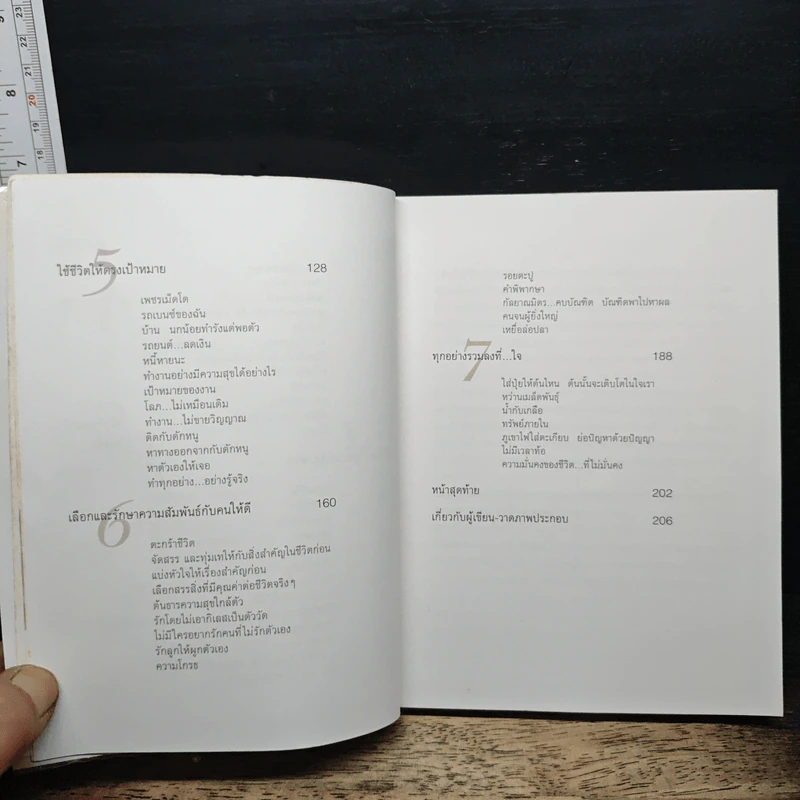 9
8
7
23
22
21
20
19
18
5
ใช้ชีวิตให้ตรงเป้าหมาย 128
เพชรเม็ดโต
รถเบนซ์ของฉัน
บ้าน นกน้อยทำรังแต่พอตัว
รถยนต์...ลดเงิน
หนี้หายนะ
ทำงานอย่างมีความสุขได้อย่างไร
เป้าหมายของงาน
โลภ...ไม่เหมือนเดิม
ทำงาน...ไม่ขายวิญญาณ
ติดกับดักหนู
หาทางออกจากกับดักหนู
หาตัวเองให้เจอ
ทำทุกอย่าง...อย่างรู้จริง
6
เลือกและรักษาความสัมพันธ์กับคนให้ดี 160
ตะกร้าชีวิต
จัดสรร และทุ่มเทให้กับสิ่งสำคัญในชีวิตก่อน
แบ่งหัวใจให้เรื่องสำคัญก่อน
เลือกสรรสิ่งที่มีคุณค่าต่อชีวิตจริงๆ
ต้นธารความสุขใกล้ตัว
รักโดยไม่เอากิเลสเป็นตัววัด
ไม่มีใครอยากรักคนที่ไม่รักตัวเอง
รักลูกให้ผูกตัวเอง
ความโกรธ
รอยตะปู
คำพิพากษา
กัลยาณมิตร...คบบัณฑิต บัณฑิตพาไปหาผล
คนจนผู้ยิ่งใหญ่
เหยื่อล่อปลา
7
ทุกอย่างรวมลงที่...ใจ 188
ใส่ปุ๋ยให้ต้นไหน ต้นนั้นจะเติบโตในใจเรา
หว่านเมล็ดพันธุ์
น้ำกับเกลือ
ทรัพย์ภายใน
ภูเขาไฟใส่ตะเกียบ ย่อปัญหาด้วยปัญญา
ไม่มีเวลาท้อ
ความมั่นคงของชีวิต...ที่ไม่มั่นคง
หน้าสุดท้าย 202
เกี่ยวกับผู้เขียน-วาดภาพประกอบ 206